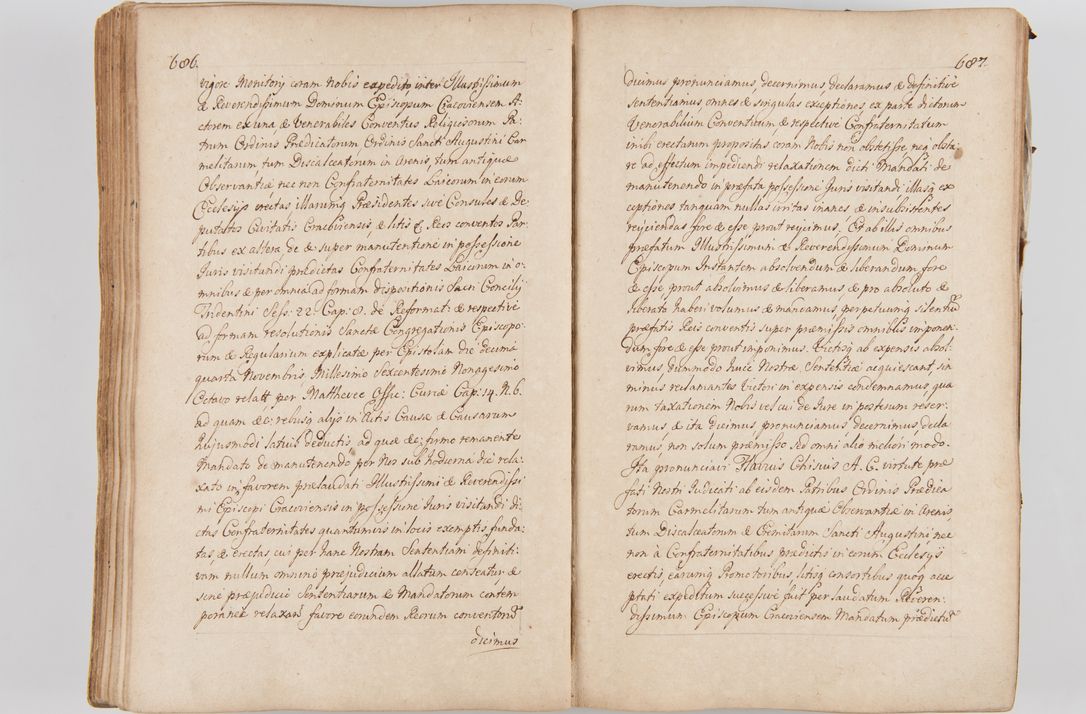 686.
vigore Monitorij coram Nobis expedito inter Illustrissimum
& Reverendissimum Dominum Episcopum Cracoviensem A-
ctorem ex una, & Venerabiles Conventus Religiosorum Pa-
trum Ordinis Prædicatorum Ordinis Sancti Augustini Car
melitarum tum Discalceatorum in Arenis, tum antiquæ
Observantiæ nec non Confraternitates Laicorum in eorum
Ecclesijs erectas illarumq Præsidentes sive Consules & De-
putatos Civitatis Cracoviensis, & litis & Reis conventos Par-
tibus ex altera de & super manutentione in possessione
Juris visitandi prædictas Confraternitates Laicorum in o-
mnibus & per omnia ad formam dispositionis Sacri Concilij
Tridentini Sess: 22. Cap: 8. de Reformat: & respective
ad formam resolutionis Sanctæ Congregationis Episcopo-
rum & Regularium explicatæ per Epistolam die decima
quarta Novembris, Millesimo Sexcentesimo Nonagesimo
Octavo relatt per Mattheuce Offic: Curiæ Cap: 14. N. 6.
ad quam &c: rebusq alijs in Actis Causæ & Causarum
hujusmodi latius deductis ad quæ &c; firmo remanente
Mandato de manutenendo per Nos sub hodierna die rela-
xato in favorem prælaudati Illustrissimi & Reverendissi
mi Episcopi Cracoviensis in possessione Juris visitandi di-
ctas Confraternitates quantumvis in locis exemptis funda-
tas, & erectas, cui per hanc Nostram Sententiam definiti-
vam nullum omnino præjudicium allatum censeatur &
sine præjudicio Sententiarum & Mandatorum contem
poranee relaxat favore eorundem Reorum conventorum
dicimus
687.
dicimus pronunciamus, decernimus, declaramus & definitive
sententiamus, omnes & singulas exceptiones ex parte dictorum
Venerabilium Conventuum, & respective Confraternitatum
inibi erectarum propositas coram Nobis non obstetisse neq obsta-
re ad effectum impediendi relaxationem dicti Mandati de
manutenendo in præfata possessione Juris visitandi illasq ex
ceptiones tanquam nullas irritas inanes & insubsistentes
rejiciendas fore & esse prout rejicimus, Et ab illis omnibus
præfatum Illustrissimum & Reverendissimum Dominum
Episcopum Instantem absolvendum & liberandum fore
& esse prout absolvimus & liberamus & pro absoluto &
liberato haberi volumus & mandamus, perpetuumq silentium
præfatis Reis conventis super præmissis omnibus imponen-
dum fore & esse prout imponimus. Victisq ab expensis absol-
vimus dummodo huic Nostræ Sententiæ acquiescant, sin
minus reclamantes Victori in expensis condemnamus qua
rum taxationem Nobis vel cui de Jure in posterum reser-
vamus & ita dicimus, pronunciamus decernimus, decla
ramus, non solum præmisso sed omni alio meliori modo.
Ita pronunciavi Flavius Chisius A. C. virtute præ
fati Nostri Judicati ab eisdem Patribus Ordinis Prædica
torum Carmelitarum tum antiquæ Observantiæ in Arenis,
tum Discalceatorum & Eremitarum Sancti Augustini nec
non à Confraternitatibus prædictis in eorum Ecclesijs
erectis, earumq Promotoribus, litisq consortibus quoq acce
ptati expeditum successive fuit per laudatum Reveren-
dissimum Episcopum Cracoviensem Mandatum prædictum